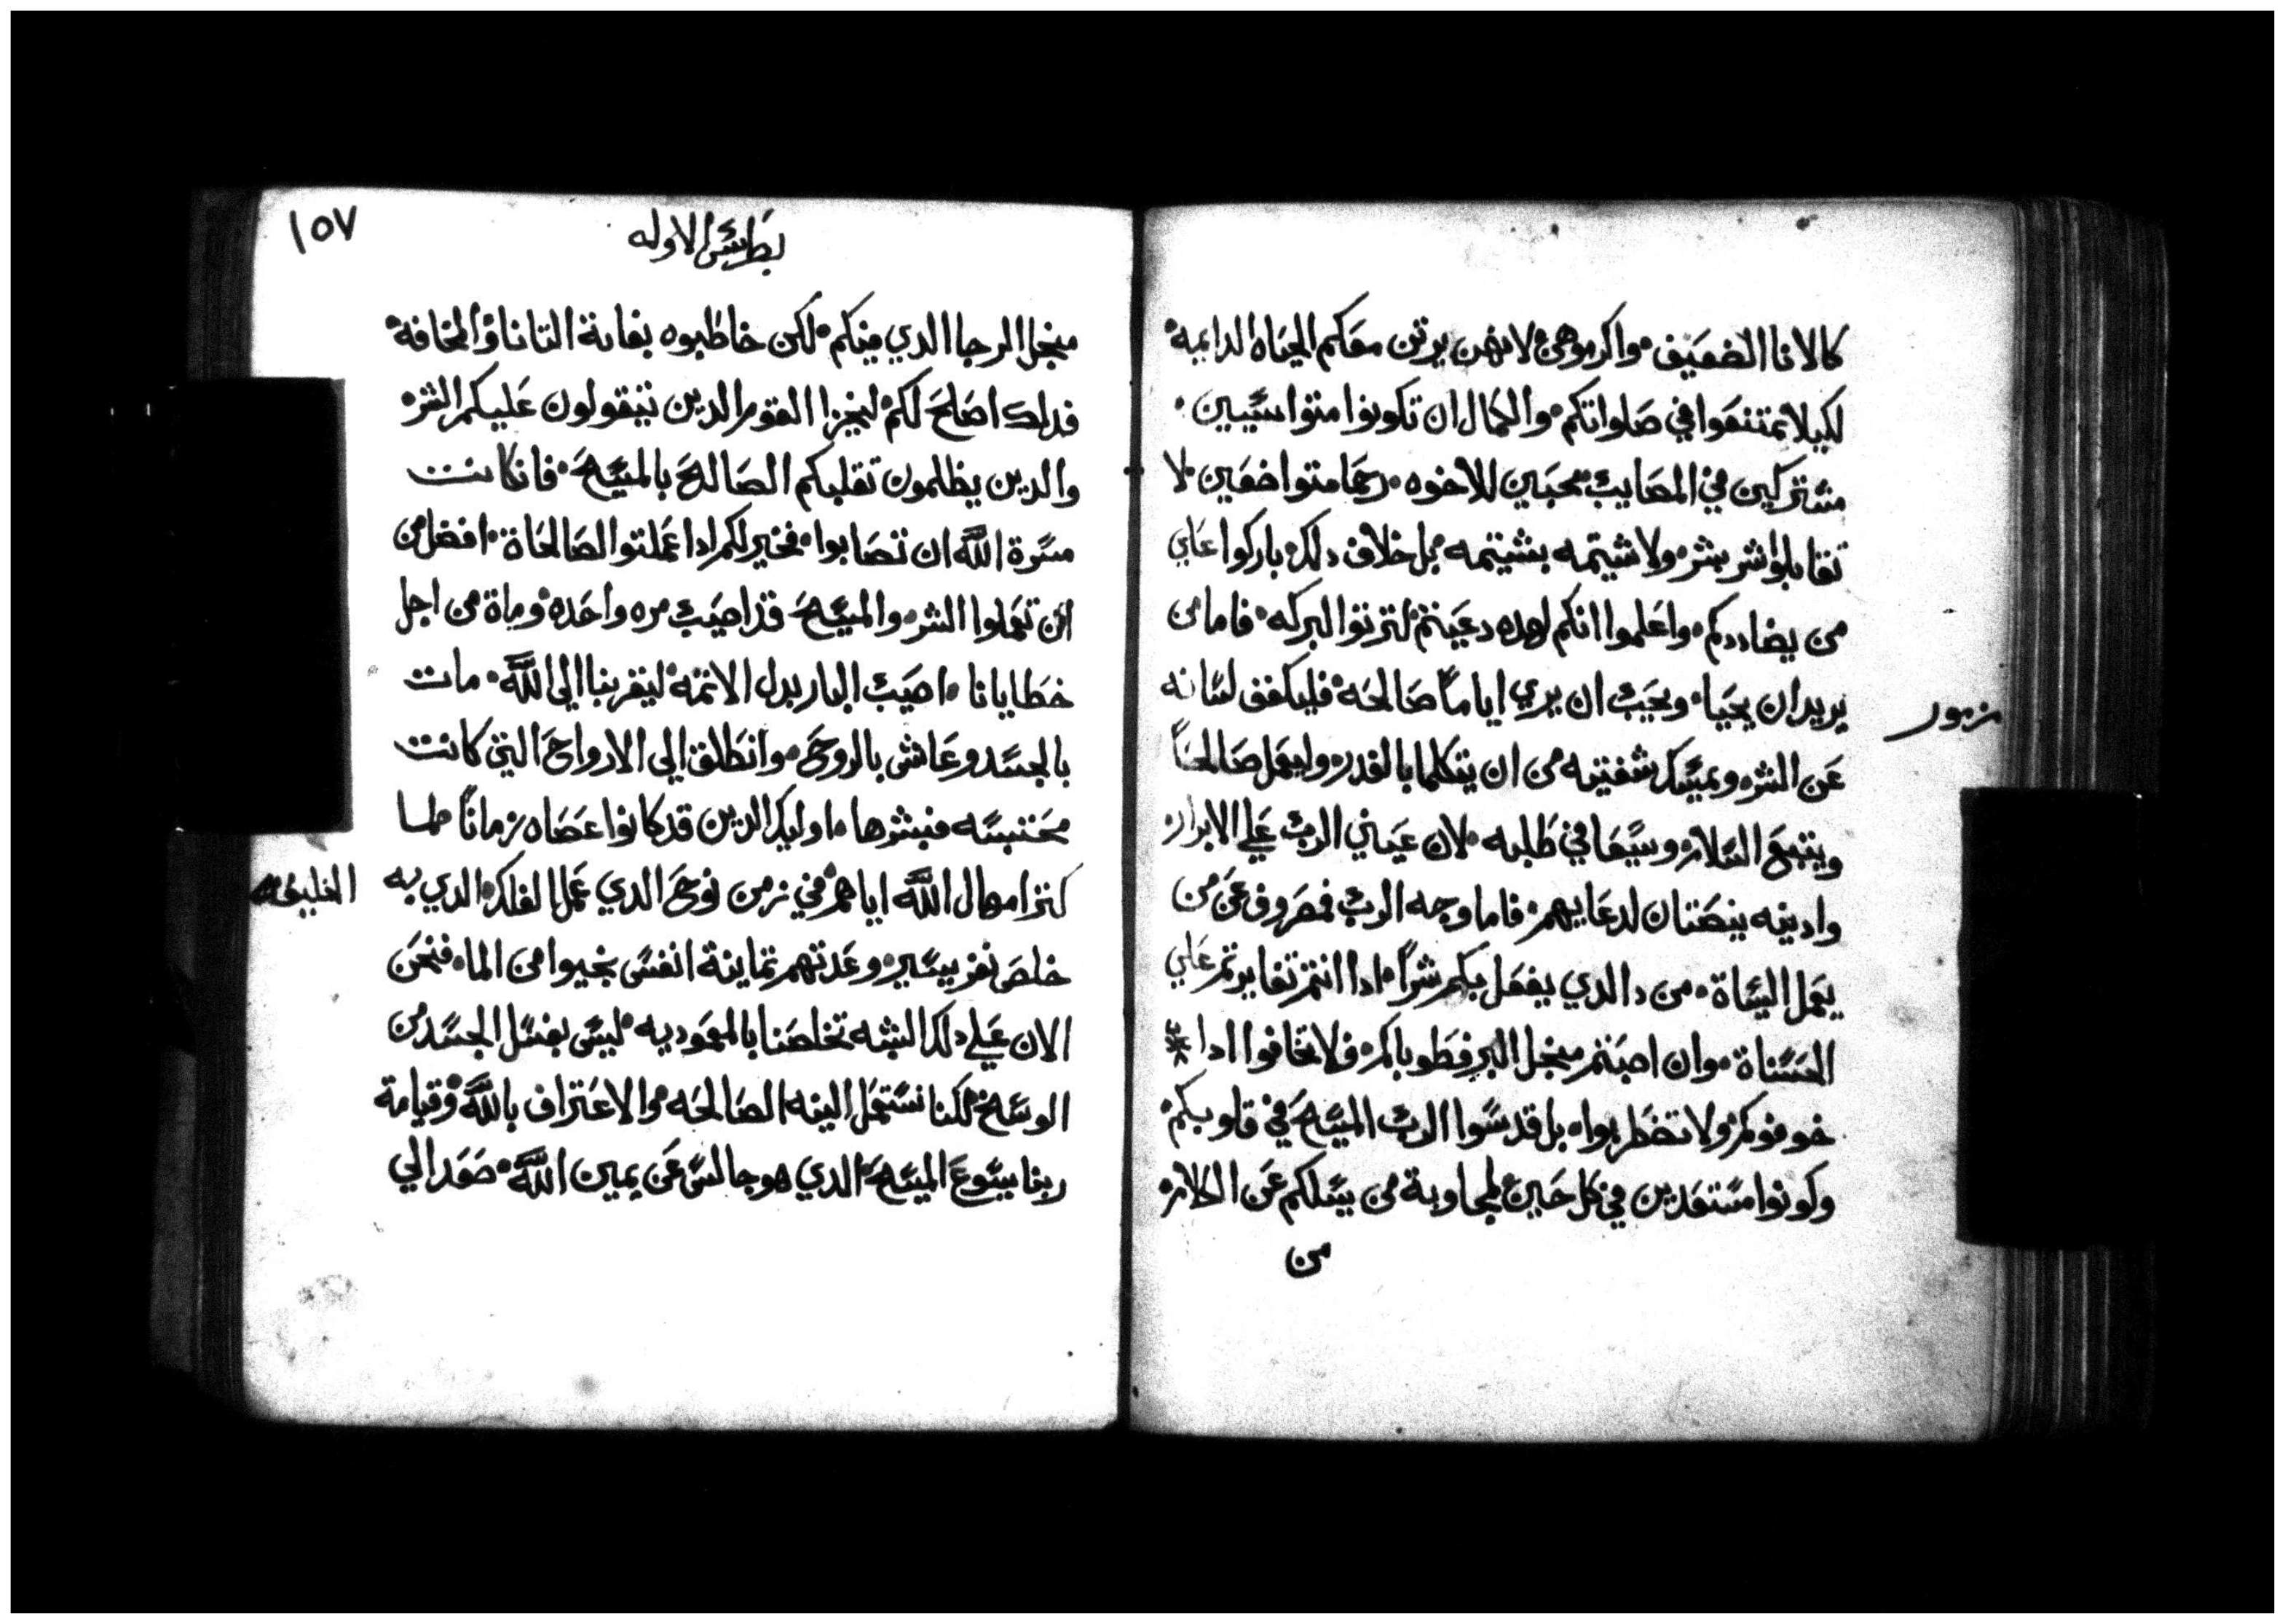 كالانا الضعيف واكرموهن لانهن يرتن معكم الحياه الدايمه
لكيلا تمتنعوا في صلواتكم والكمال ان تكونوا متواسيين
مشتركين في المصايب محبين للاخوه رحما متواضعين لا
تقابلوا شر بشر ولا شيتمه بشيتمه بل خلاف دلك باركوا علي
من يضاددكم واعلموا انكم لهده دعيتم لترتوا البركه فاما من
يريد ان يحيا ويحب ان يري اياماً صالحه فليكفف لسانه
زبور
عن الشر ويمسك شفتيه من ان يتكلما بالغدر وليعمل صالحاً
ويتبع السلام ويسعا في طلبه لان عيني الرب علي الابرار
وادنيه ينصتان لدعايهم فاما وجه الرب فمصروف عن من
يعمل السياة من دا الدي يفعل بكم شراً ادا انتم تغايرتم علي
الحسناة وان اصبتم منجل البر فطوباكم فلا تخافوا ادا
خوفوكم ولا تضطربوا بل قدسوا الرب المسيح في قلوبكم
وكونوا مستعدين في كل حين لمجاوبة من يسلكم عن الكلام
من
١٥٧
بطرس الاوله
منجل الرجا الدي فيكم لكن خاطبوه بغاية التانا والمخافة
فدلك اصلح لكم ليخزا القوم الدين يتقولون عليكم الشر
والدين يظلمون تقلبكم الصالح بالمسيح فان كانت
مسرة الله ان تصابوا فخير لكم ادا عملتوا الصالحاة افضل من
ان تعملوا الشر والمسيح قد اصيب مره واحده وماة من اجل
خطايانا اصيب البار بدل الاتمه ليقربنا الي الله مات
بالجسد وعاش بالروح وانطلق الي الارواح التي كانت
محتبسه فبشرها اوليك الدين قد كانوا عصاه زماناً لما
كتر امهال الله اياهم في زمن نوح الدي عمل الفلك الدي به
الخليقه
خلص نفر يسير وعدتهم تماينة انفس نجيوا من الما فنحن
الان علي دلك الشبه تخلصنا بالمعموديه ليس بغسل الجسد من
الوسخ لكنا نستعمل النيه الصالحه والاعتراف بالله وقيامة
ربنا يسوع المسيح الدي هو جالس عن يمين الله صعد الي